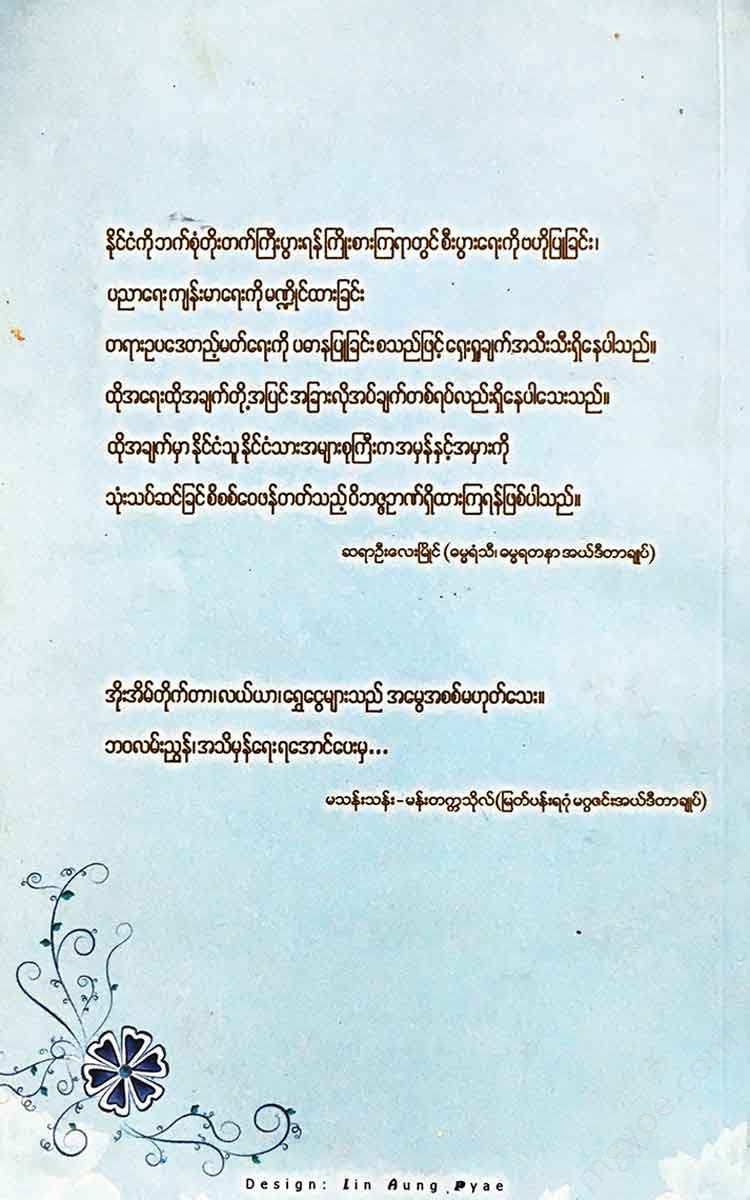 နိုင်ငံကို ဘက်စုံတိုးတက်ကြီးပွားရန် ကြိုးစားကြရာတွင် စီးပွားရေးကို ဗဟိုပြုခြင်း၊
ပညာရေး ကျန်းမာရေးကို မဏ္ဍိုင်ထားခြင်း
တရားဥပဒေတည့်မတ်ရေးကို ပဓာနပြုခြင်း စသည်ဖြင့် ရှေးရှုချက် အသီးသီးရှိနေပါသည်။
ထိုအရေးထိုအချက်တို့အပြင် အခြားလိုအပ်ချက်တစ်ရပ်လည်းရှိနေပါသေးသည်။
ထိုအချက်မှာ နိုင်ငံသူ နိုင်ငံသားအများစုကြီးက အမှန်နှင့်အမှားကို
သုံးသပ်ဆင်ခြင် စိစစ်ဝေဖန်တတ်သည့် ဝိဘဇ္ဇဉာဏ်ရှိထားကြရန်ဖြစ်ပါသည်။
ဆရာဦးလေးမြိုင် (ဓမ္မရံသီ၊ ဓမ္မရတနာ အယ်ဒီတာချုပ်)
အိုးအိမ်တိုက်တာ၊ လယ်ယာ၊ ရွှေငွေများသည် အမွေအစစ်မဟုတ်သေး။
ဘဝလမ်းညွှန်၊ အသိမှန်ရေးရအောင်ပေးမှ...
မသန်းသန်း - မန်းတက္ကသိုလ် (မြတ်ပန်းရဂုံ မဂ္ဂဇင်းအယ်ဒီတာချုပ်)
Design: Lin Aung Pyae